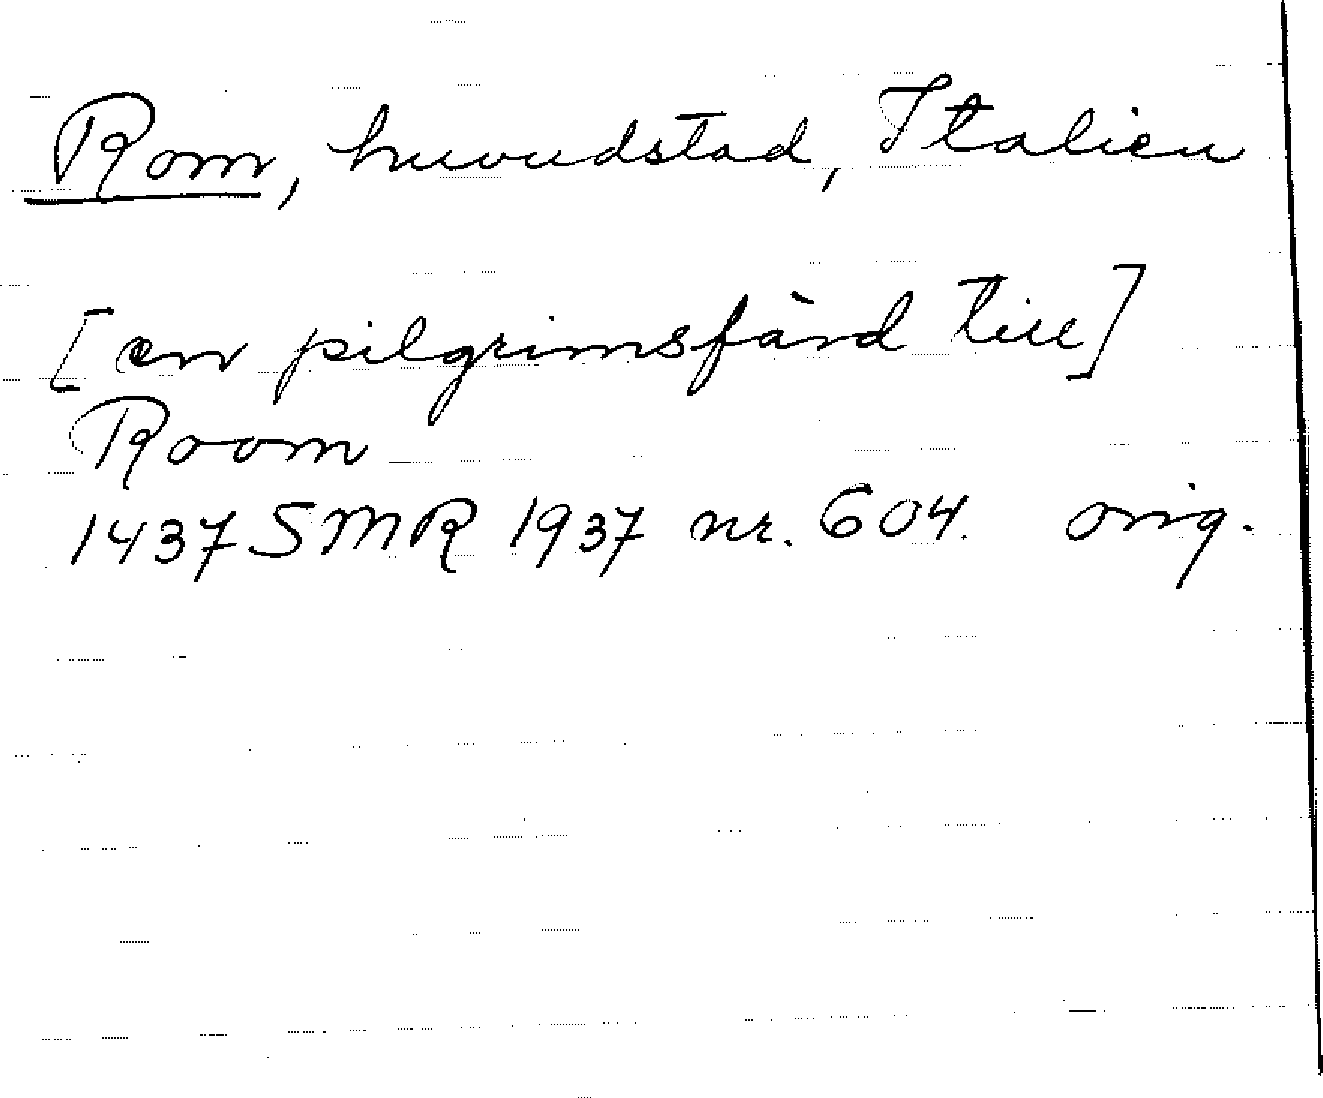 Rom, huvudstad, Italien
[en pilgrimsfärd till]
Room
1437 SMR 1937 nr. 604. orig.